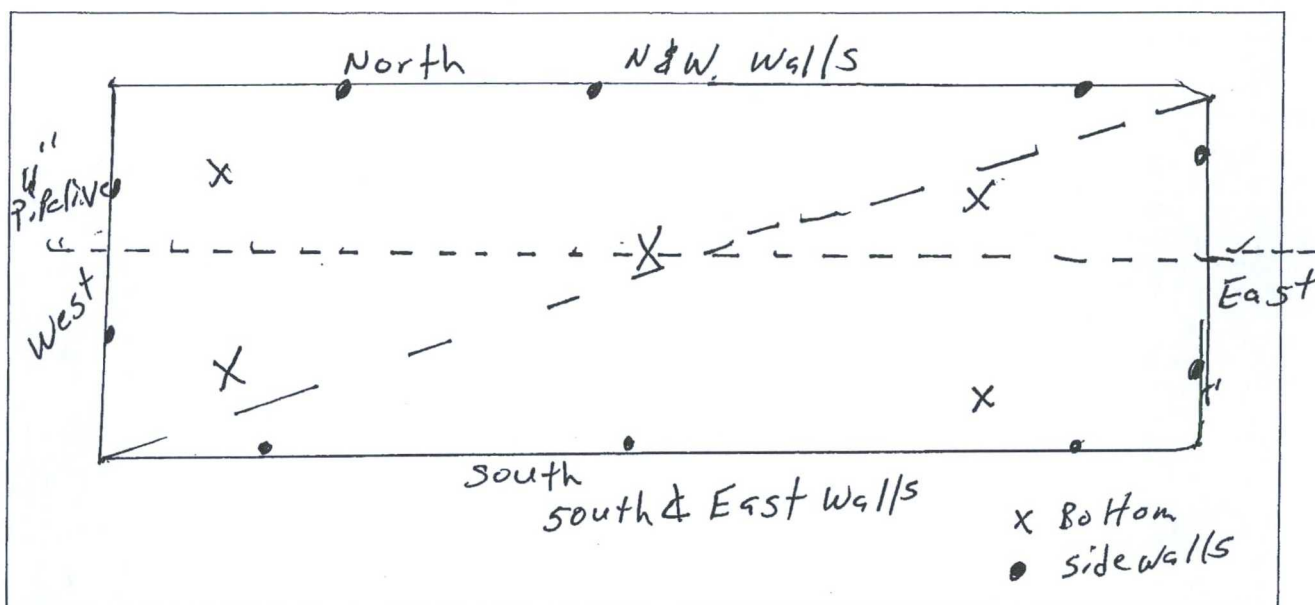 North
N&W. Walls
4"
Pipeline
West
East
South
South & East Walls
x Bottom
• sidewalls